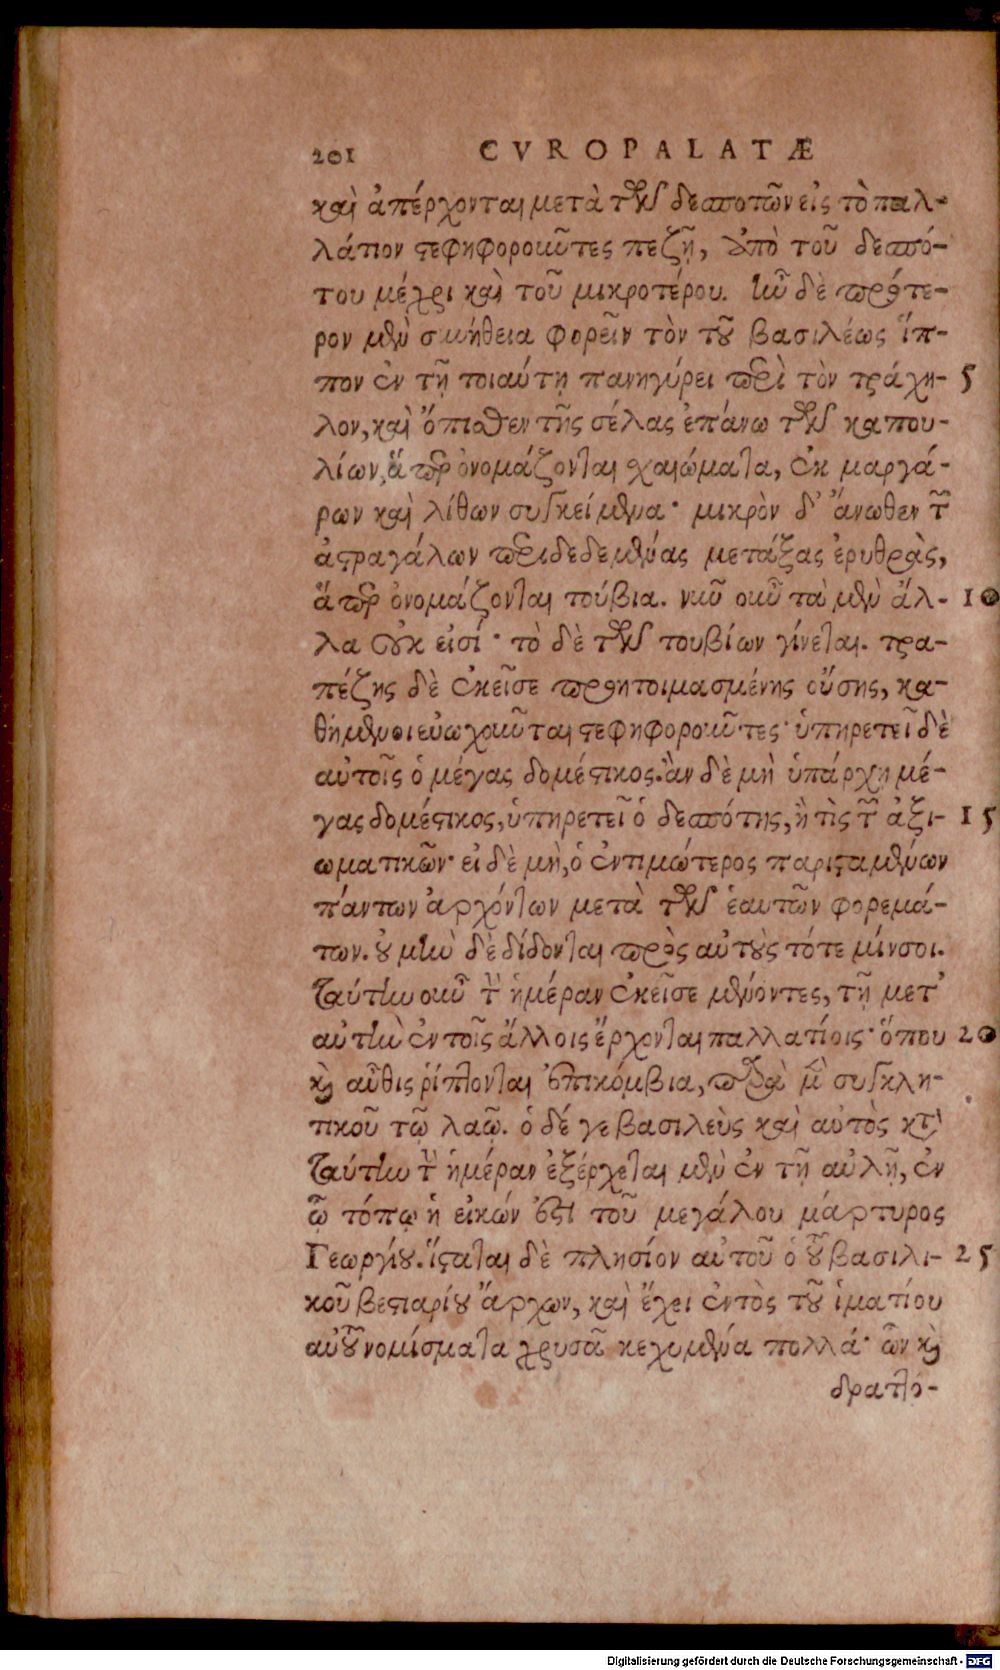 201 CVROPALATÆ
καὶ ἀπέρχονται μετὰ τῶν δεσποτῶν εἰς τὸ παλ-
λάτιον στεφηφοροῦντες πεζῇ, ἀπὸ τοῦ δεσπό-
του μέχρι καὶ τοῦ μικροτέρου. ἦν δὲ πρότε-
ρον μὲν συνήθεια φορεῖν τὸν τοῦ βασιλέως ἵπ-
πον ἐν τῇ τοιαύτῃ πανηγύρει περὶ τὸν τράχη- 5
λον, καὶ ὄπισθεν τῆς σέλας ἐπάνω τῶν καπου-
λίων, ἅπερ ὀνομάζονται χαιώματα, ἐκ μαργά-
ρων καὶ λίθων συγκείμενα· μικρὸν δ' ἄνωθεν τῶν
ἀστραγάλων περιδεδεμένας μετάξας ἐρυθρὰς,
ἅπερ ὀνομάζονται τούβια. νῦν οὖν τὰ μὲν ἄλ- 10
λα οὐκ εἰσί· τὸ δὲ τῶν τουβίων γίνεται. τρα-
πέζης δὲ ἐκεῖσε προητοιμασμένης οὔσης, κα-
θήμενοι εὐωχοῦνται στεφηφοροῦντες· ὑπηρετεῖ δὲ
αὐτοῖς ὁ μέγας δομέστικος. ἂν δὲ μὴ ὑπάρχῃ μέ-
γας δομέστικος, ὑπηρετεῖ ὁ δεσπότης, ἢ τὶς τῶν ἀξι- 15
ωματικῶν· εἰ δὲ μὴ, ὁ ἐντιμώτερος παρισταμένων
πάντων ἀρχόντων μετὰ τῶν ἑαυτῶν φορεμά-
των. οὐ μὴν δὲ δίδονται πρὸς αὐτοὺς τότε μίνσοι.
ταύτην οὖν τὴν ἡμέραν ἐκεῖσε μένοντες, τῇ μετ'
αὐτὴν ἐν τοῖς ἄλλοις ἔρχονται παλλατίοις· ὅπου 20
καὶ αὖθις ῥίπτονται ἐπικόμβια, παρὰ μὲν συγκλη-
τικοῦ τῷ λαῷ. ὁ δέ γε βασιλεὺς καὶ αὐτὸς κατὰ
ταύτην τὴν ἡμέραν ἐξέρχεται μὲν ἐν τῇ αὐλῇ, ἐν
ᾧ τόπῳ ἡ εἰκών ἐστι τοῦ μεγάλου μάρτυρος
Γεωργίου. ἵσταται δὲ πλησίον αὐτοῦ ὁ τοῦ βασιλι- 25
κοῦ βεστιαρίου ἄρχων, καὶ ἔχει ἐντὸς τοῦ ἱματίου
αὐτοῦ νομίσματα χρυσᾶ κεχυμένα πολλά· ὧν καὶ
δραττό-
Digitalisierung gefördert durch die Deutsche Forschungsgemeinschaft - DFG